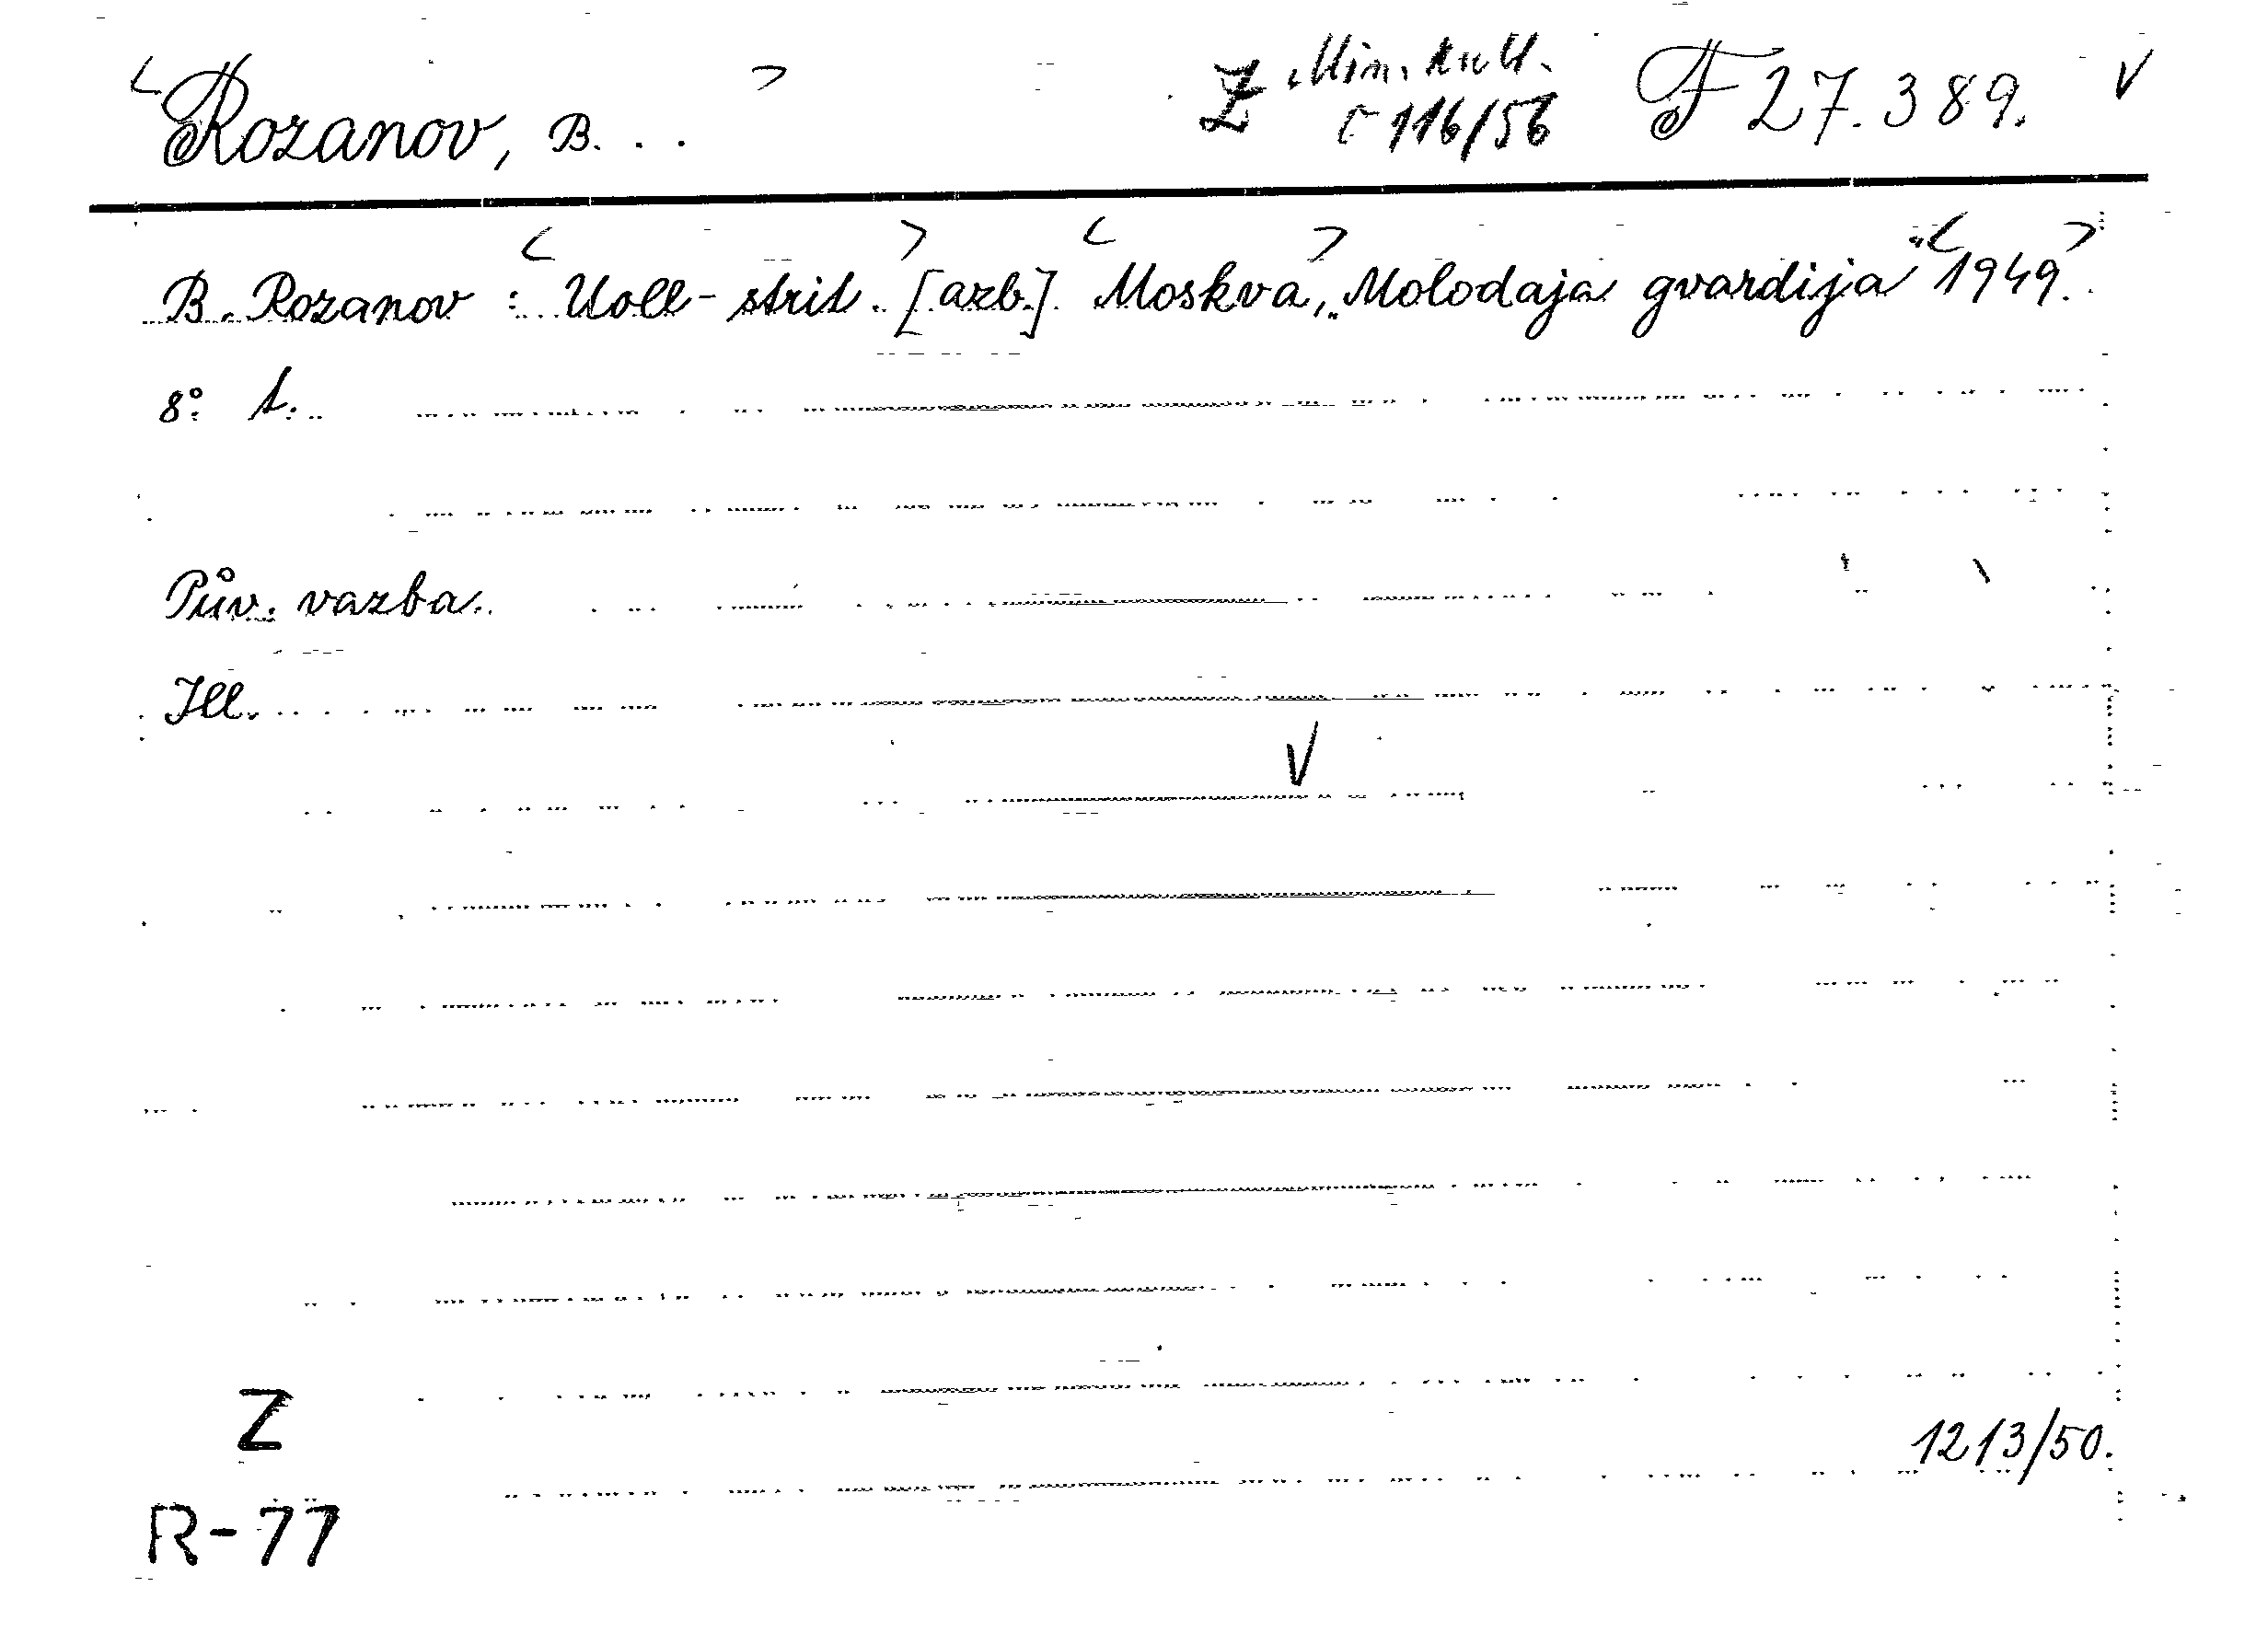 <Rozanov, B. . .> Z Min. kult. č 116/56 F 27.389. V
B. Rozanov: <Uoll-strit.> [azb]. <Moskva>, „Molodaja gvardija“ <1949>.
8º. A.
Pův. vazba.
Ill.
V
Z
1213/50.
R-77